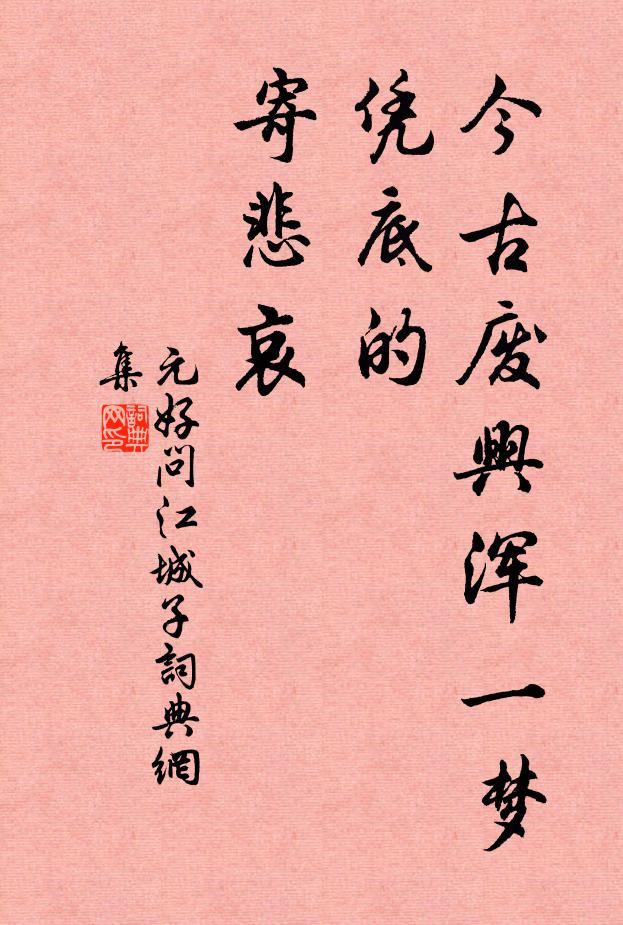 今古废興浑一梦
凭底的
寄悲哀
元好问江城子詞典網
集
詞典网印